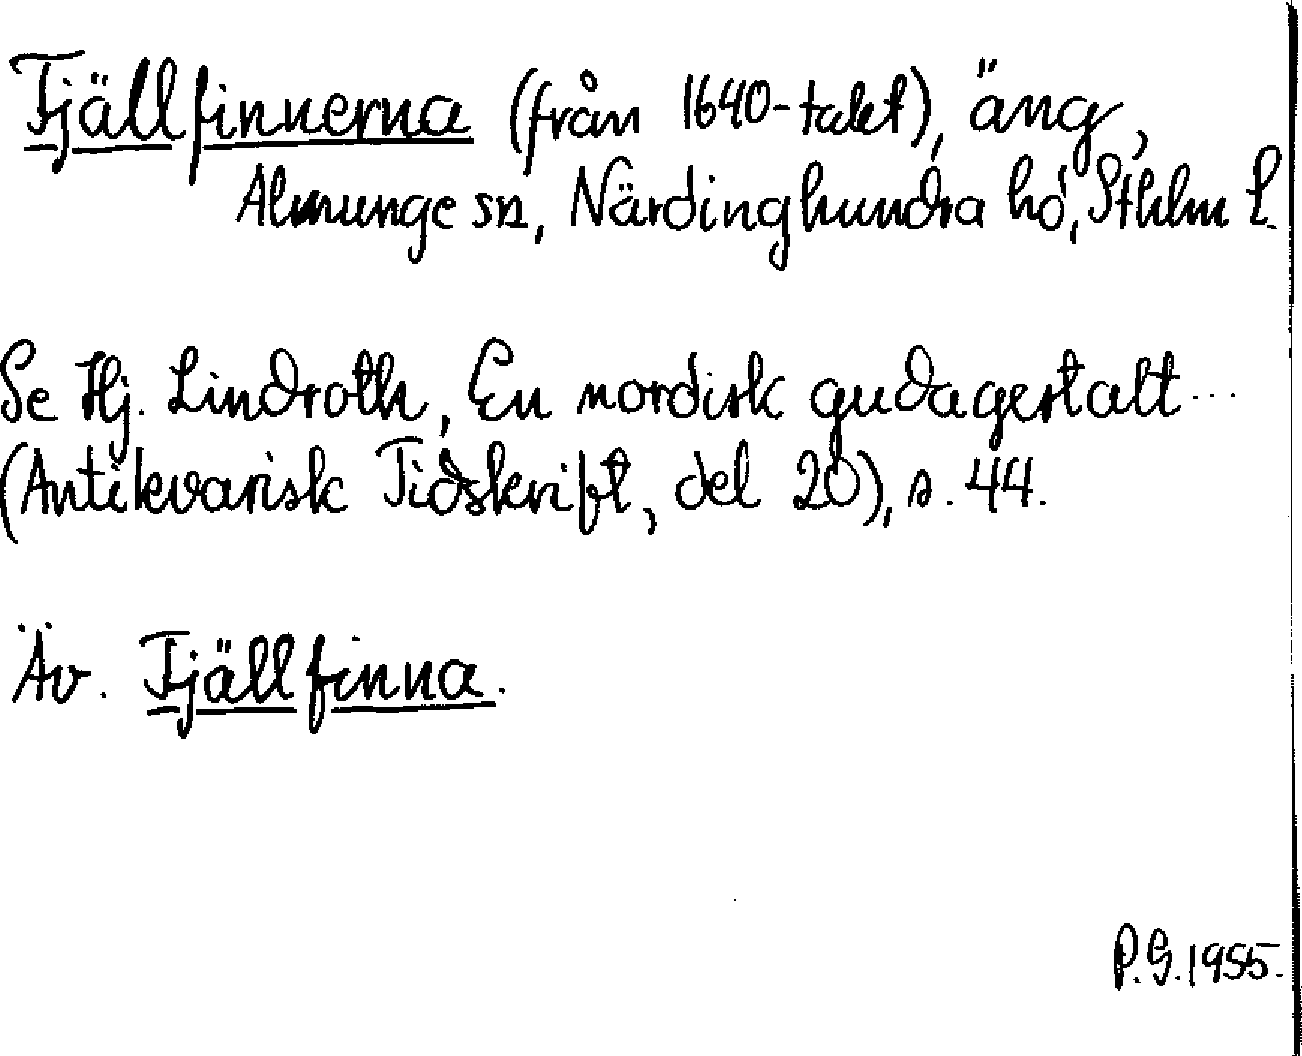 Tjällfinnerna (från 1640-talet), äng,
Almunge sn, Närdinghundra hd, Sthlm L.
Se Hj. Lindroth, En nordisk gudagestalt ...
(Antikvarisk Tidskrift, del 20), s. 44.
Äv. Tjällfinna.
P.G. 1955.